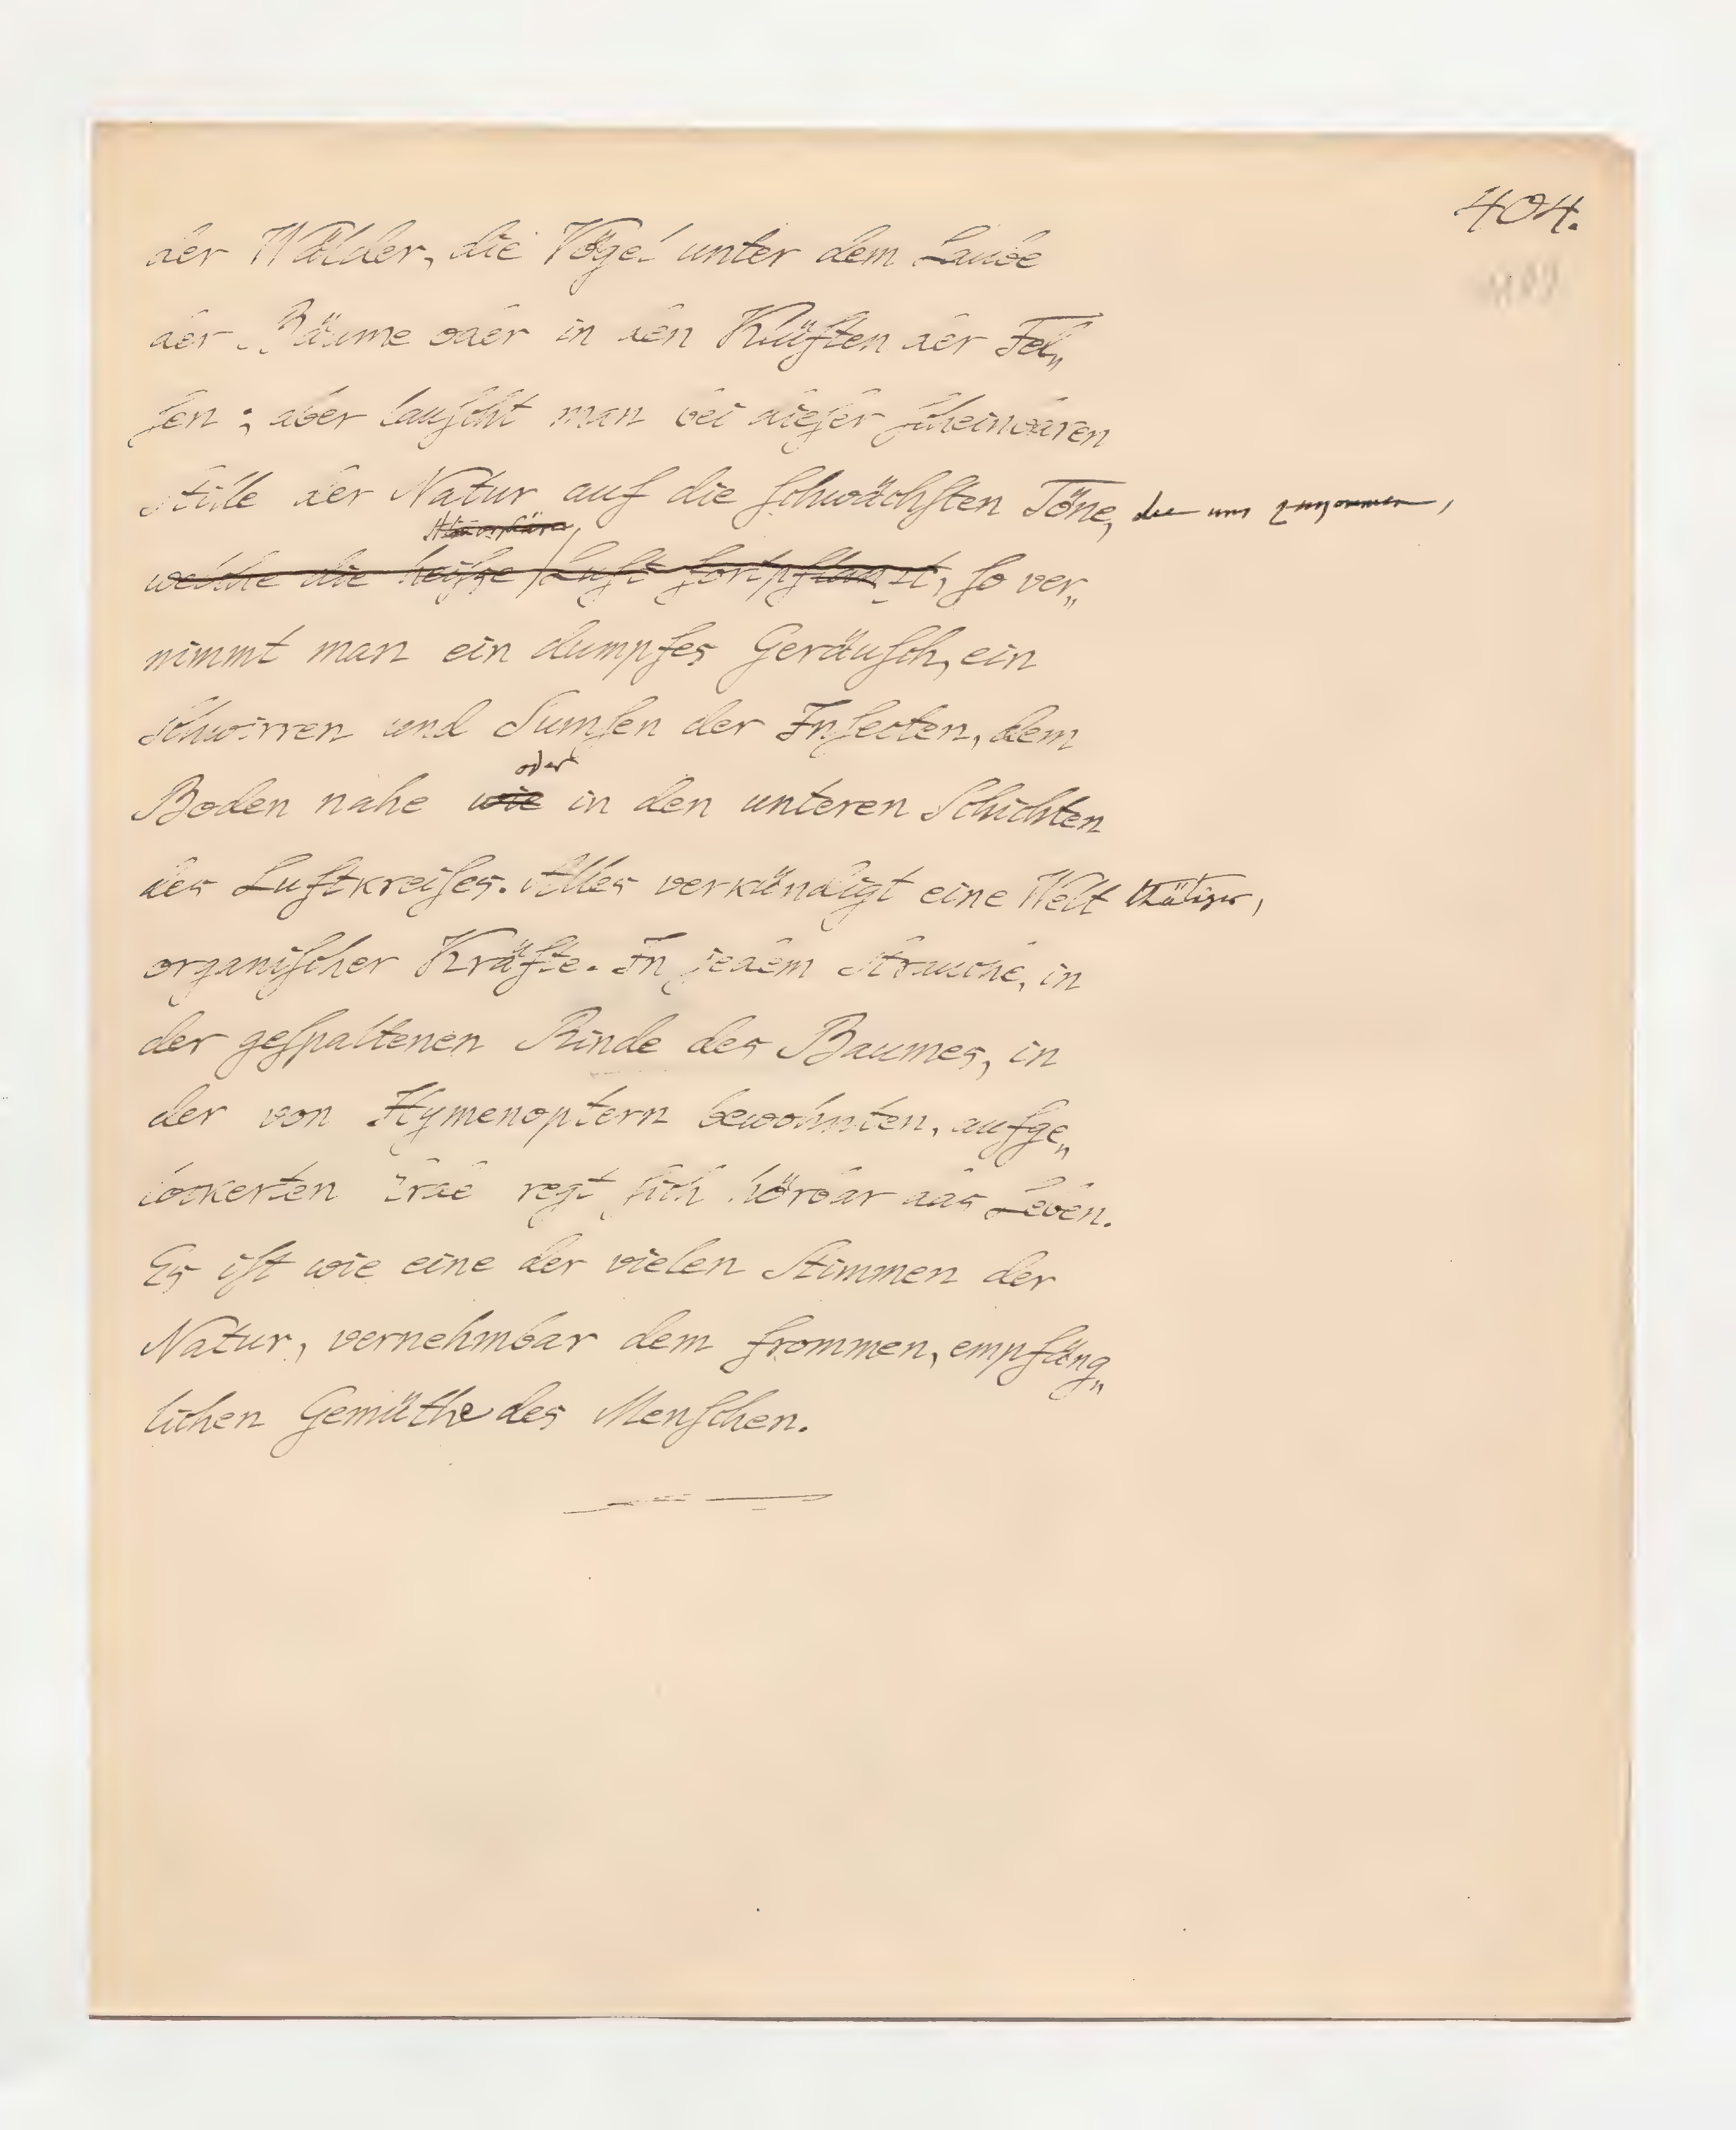 404.
der Wälder, die Vögel unter dem Laube
der Bäume oder in den Klüften der Fel„
ſen; aber lauſcht man bei dieſer ſcheinbaren
Stille der Natur auf die ſchwächſten Töne, die uns zukommen,
welche die heiſse Luft fortpflanzt, ſo ver„
nimmt man ein dumpfes Geräuſch, ein
Schwirren und Sumſen der Inſecten, dem
oder
Boden nahe wie in den unteren Schichten
des Luftkreiſes. Alles verkündigt eine Welt thätiger,
organiſcher Kräfte. In jedem Strauche, in
der geſpaltenen Rinde des Baumes, in
der von Hymenoptern bewohnten, aufge„
lockerten Erde regt ſich hörbar das Leben.
Es iſt wie eine der vielen Stimmen der
Natur, vernehmbar dem frommen, empfäng„
lichen Gemüthe des Menſchen.